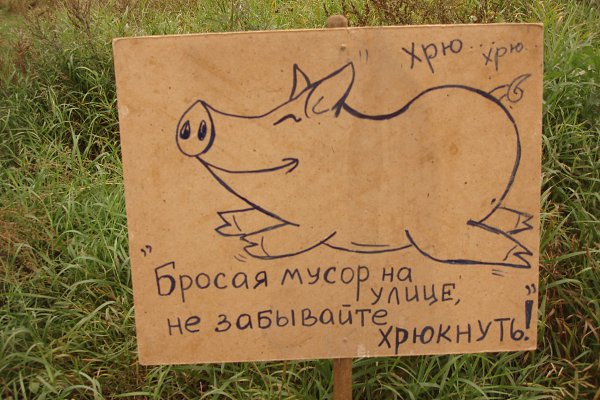 " хрю хрю
" Бросая мусор на
улице,
не забывайте
хрюкнуть! "